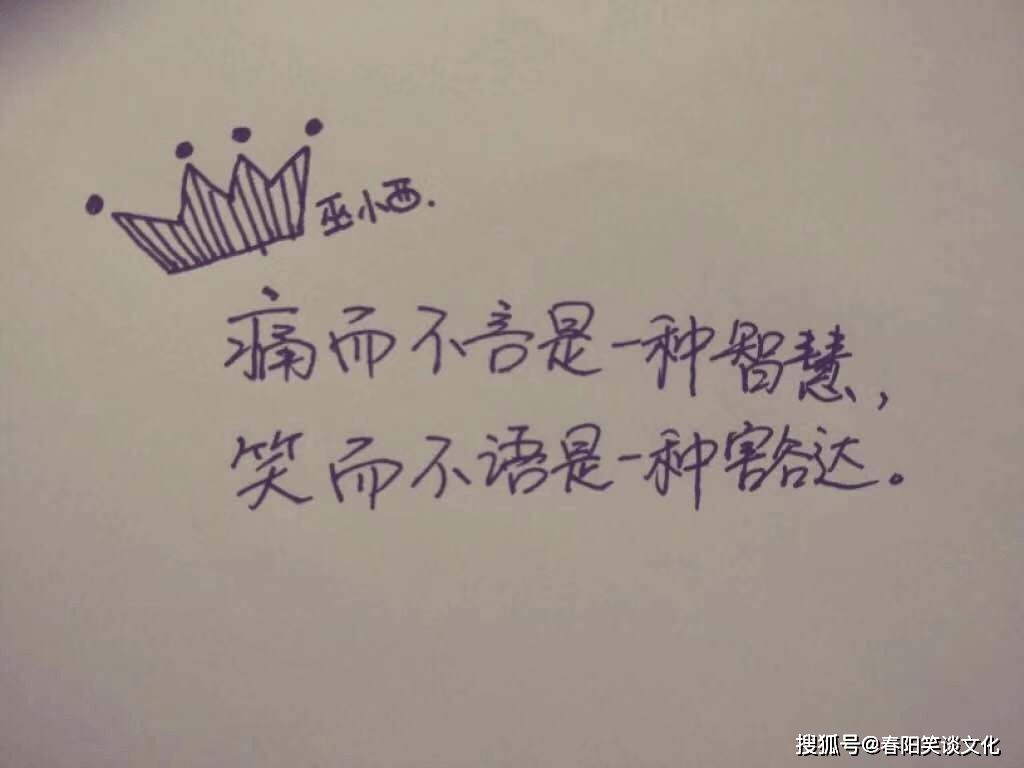 巫小西.
痛而不言是一种智慧,
笑而不语是一种豁达。
搜狐号@春阳笑谈文化